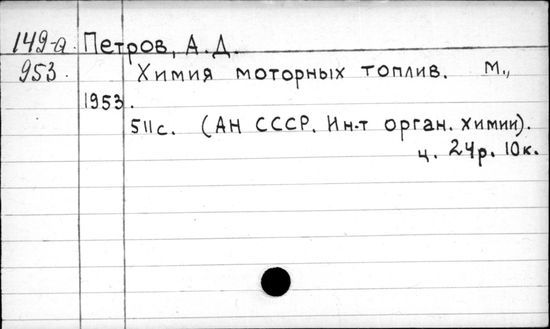 149-а Петров, А.Д.
953. Химия моторных топлив. М.,
1953.
511с. (АН СССР. Ин-т орган. химии).
ц. 24р. 10к.